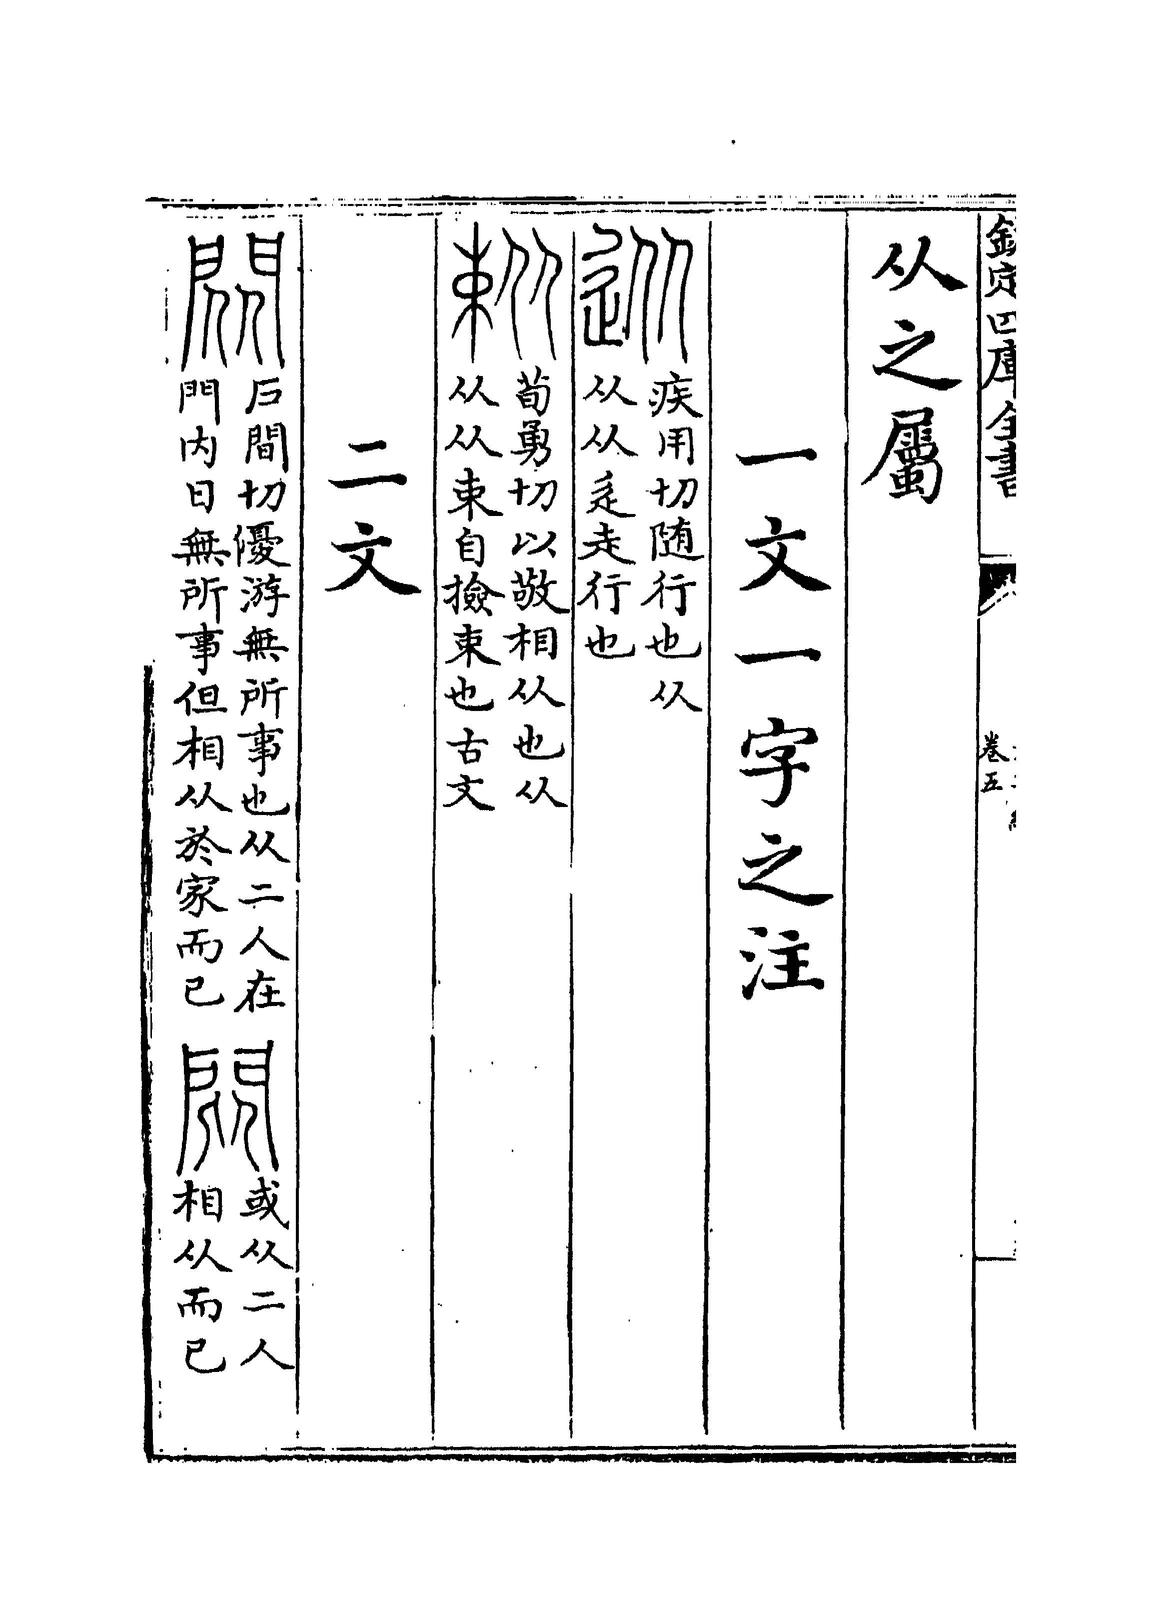 欽定四庫全書
卷五
从之屬
一文一字之注
疾用切随行也从
从从辵走行也
荀勇切以敬相从也从
从从束自撿束也古文
二文
戶間切優游無所事也从二人在
門内日無所事但相从於家而已
或从二人
相从而已